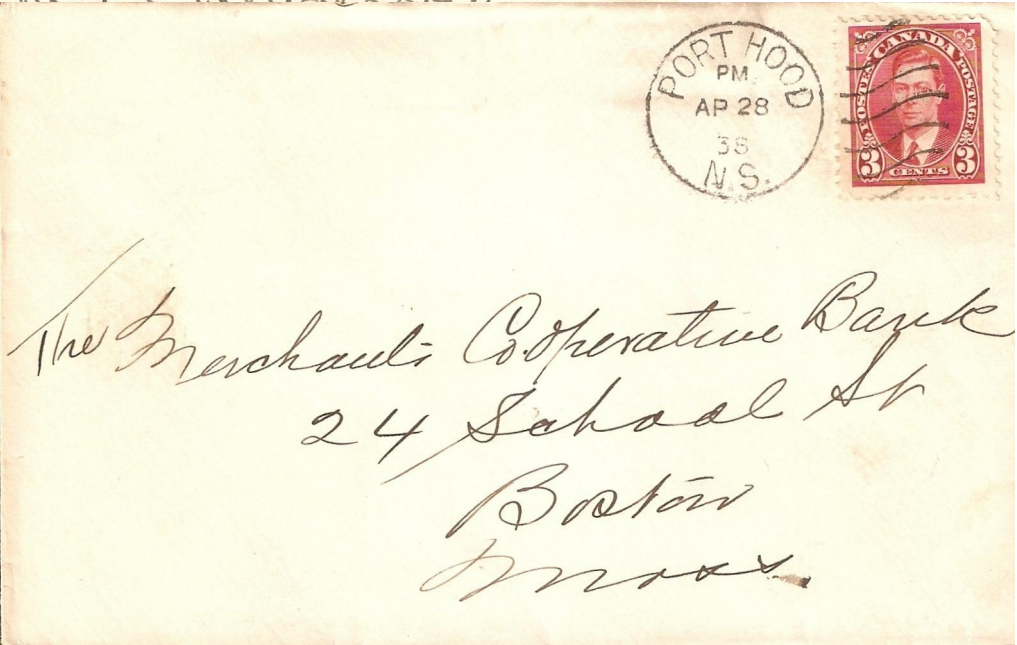 PORT HOOD
PM
AP 28
38
N.S.
POSTES CANADA POSTAGE
3 CENTS 3
The Merchants Cooperative Bank
24 School St
Boston
Mass.